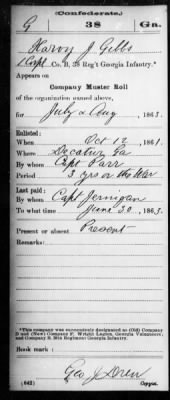 (Confederate.)
G 38 Ga.
Harvy J. Gibbs
Capt, Co. B, 38 Reg't Georgia Infantry.*
Appears on
Company Muster Roll
of the organization named above,
for July & Aug, 1863.
Enlisted:
When Oct 12, 1861.
Where Decatur Ga
By whom Capt Parr
Period 3 yrs or the War
Last paid:
By whom Capt Jernigan
To what time June 30, 1863.
Present or absent Present
Remarks:
*This company was successively designated as (Old) Company
D and (New) Company F, Wright Legion, Georgia Volunteers;
and Company B, 38th Regiment Georgia Infantry.
Book mark:
Geo J Dren
(642) Copyist.